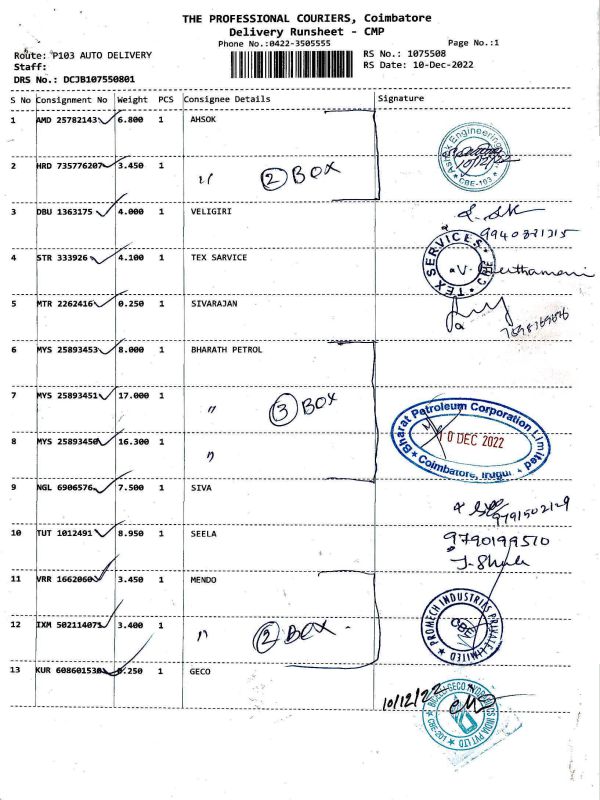 THE PROFESSIONAL COURIERS, Coimbatore
Delivery Runsheet - CMP
Phone No.:0422-3505555
Page No.:1
Route: P103 AUTO DELIVERY
RS No.: 1075508
Staff:
RS Date: 10-Dec-2022
DRS No.: DCJB107550801
S No Consignment No Weight PCS Consignee Details Signature
1 AMD 25782143 6.800 1 AHSOK
2 HRD 735776207 3.450 1 〃 2 BOX
10/12/22
CBE-103
3 DBU 1363175 4.000 1 VELIGIRI
9940821215
4 STR 333926 4.100 1 TEX SARVICE
TEX SERVICES CBE
5 MTR 2262416 0.250 1 SIVARAJAN
6 MYS 25893453 8.000 1 BHARATH PETROL
7 MYS 25893451 17.000 1 〃 3 BOX
Bharat Petroleum Corporation Limited
10 DEC 2022
Coimbatore, Irugur
8 MYS 25893450 16.300 1 〃
9 NGL 6906576 7.500 1 SIVA
9791502129
10 TUT 1012491 8.950 1 SEELA
9790199510
11 VRR 1662060 3.450 1 MENDO
PROMECH INDUSTRIES PRIVATE LIMITED
CBE
12 IXM 502114071 3.400 1 〃 2 BOX
13 KUR 608601530 0.250 1 GECO
10/12/22